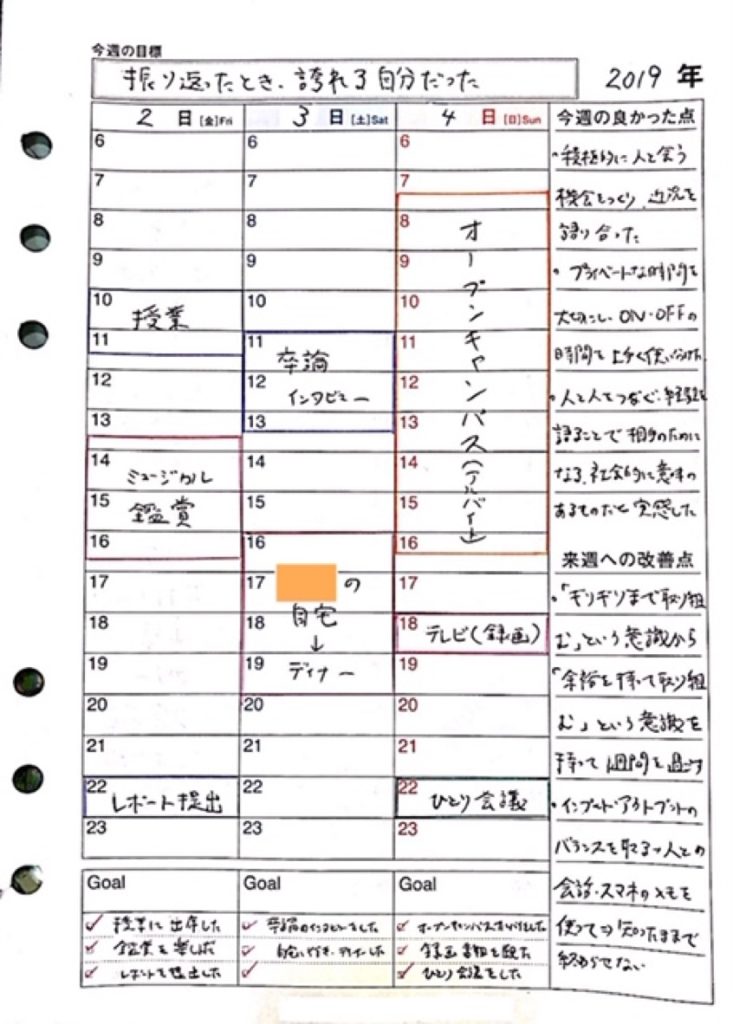 今週の目標
振り返ったとき、誇れる自分だった
2019 年
2 日 [金]Fri
3 日 [土]Sat
4 日 [日]Sun
6
7
8
9
10 授業
11
12
13
14 ミュージカル
15 鑑賞
16
17
18
19
20
21
22 レポート提出
23
6
7
8
9
10
11 卒論
12 インタビュー
13
14
15
16
17 の
18 自宅
↓
19 ディナー
20
21
22
23
6
7
8
9
10
11
12
13
14
15
16
オープンキャンパス(アルバイト)
17
18 テレビ(録画)
19
20
21
22 ひとり会議
23
今週の良かった点
・積極的に人と会う
機会をつくり、近況を
語り合った
・プライベートな時間を
大切にし、ON・OFFの
時間を上手く使い分けた
・人と人をつなぐ、経験を
語ることで相手のために
なる、社会的に意味の
あるものだと実感した
来週への改善点
・「ギリギリまで取り組
む」という意識から
「余裕を持って取り組
む」という意識を
持って1週間を過ごす
・インプット・アウトプットの
バランスを取る→人との
会話・スマホのメモを
使って⇒知ったままで
終わらせない
Goal
✓ 授業に出席した
✓ 鑑賞を楽しんだ
✓ レポートを提出した
Goal
✓ 卒論のインタビューをした
✓ 自宅に行き、ディナーした
✓
Goal
✓ オープンキャンパスをした
✓ 録画番組を観た
✓ ひとり会議をした